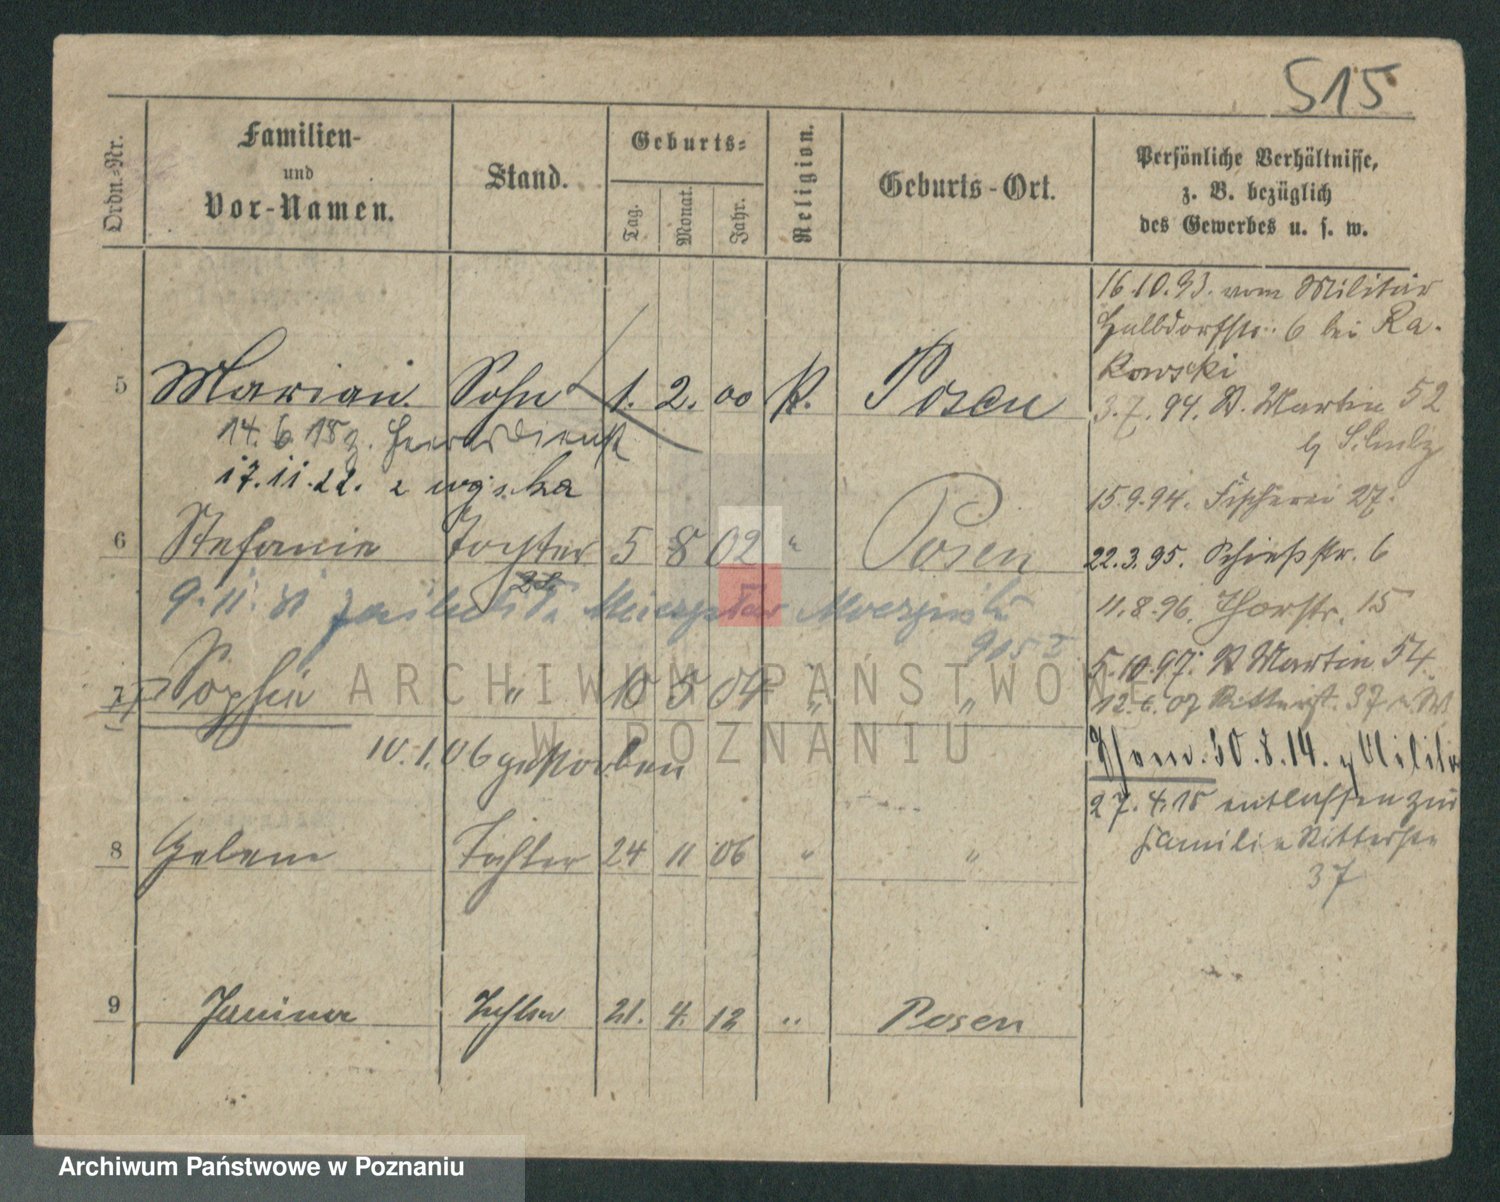 515
Ordn.-Nr.
Familien-
und
Vor-Namen.
Stand.
Geburts-
Tag.
Monat.
Jahr.
Religion.
Geburts-Ort.
Persönliche Verhältnisse,
z. B. bezüglich
des Gewerbes u. s. w.
16.10.93. vom Militär
Halbdorfstr. 6 bei Ra-
kowski
5 Marian Sohn 1. 2. 00 K. Posen
3.7.94. St. Martin 52
14.6.15 z. Heeresdienst
17.11.22. z wojska
15.9.94. Fischerei 27.
6 Stefanie Tochter 5 8 02 " Posen
22.3.95. Schießstr. 6
9.11.
11.8.96. Thorstr. 15
5.10.97. St Martin 54
7 Sophie " 10 5 04 " "
12.6.07 Ritterst. 37
10.1.06 gestorben
30.8.14. z Militär
27.4.15 entlassen zur
Familie Ritterstr
37
8 Helene Tochter 24 11 06 " "
9 Janina Tochter 21. 4. 12 " Posen
ARCHIWUM PAŃSTWOWE
W POZNANIU
Archiwum Państwowe w Poznaniu